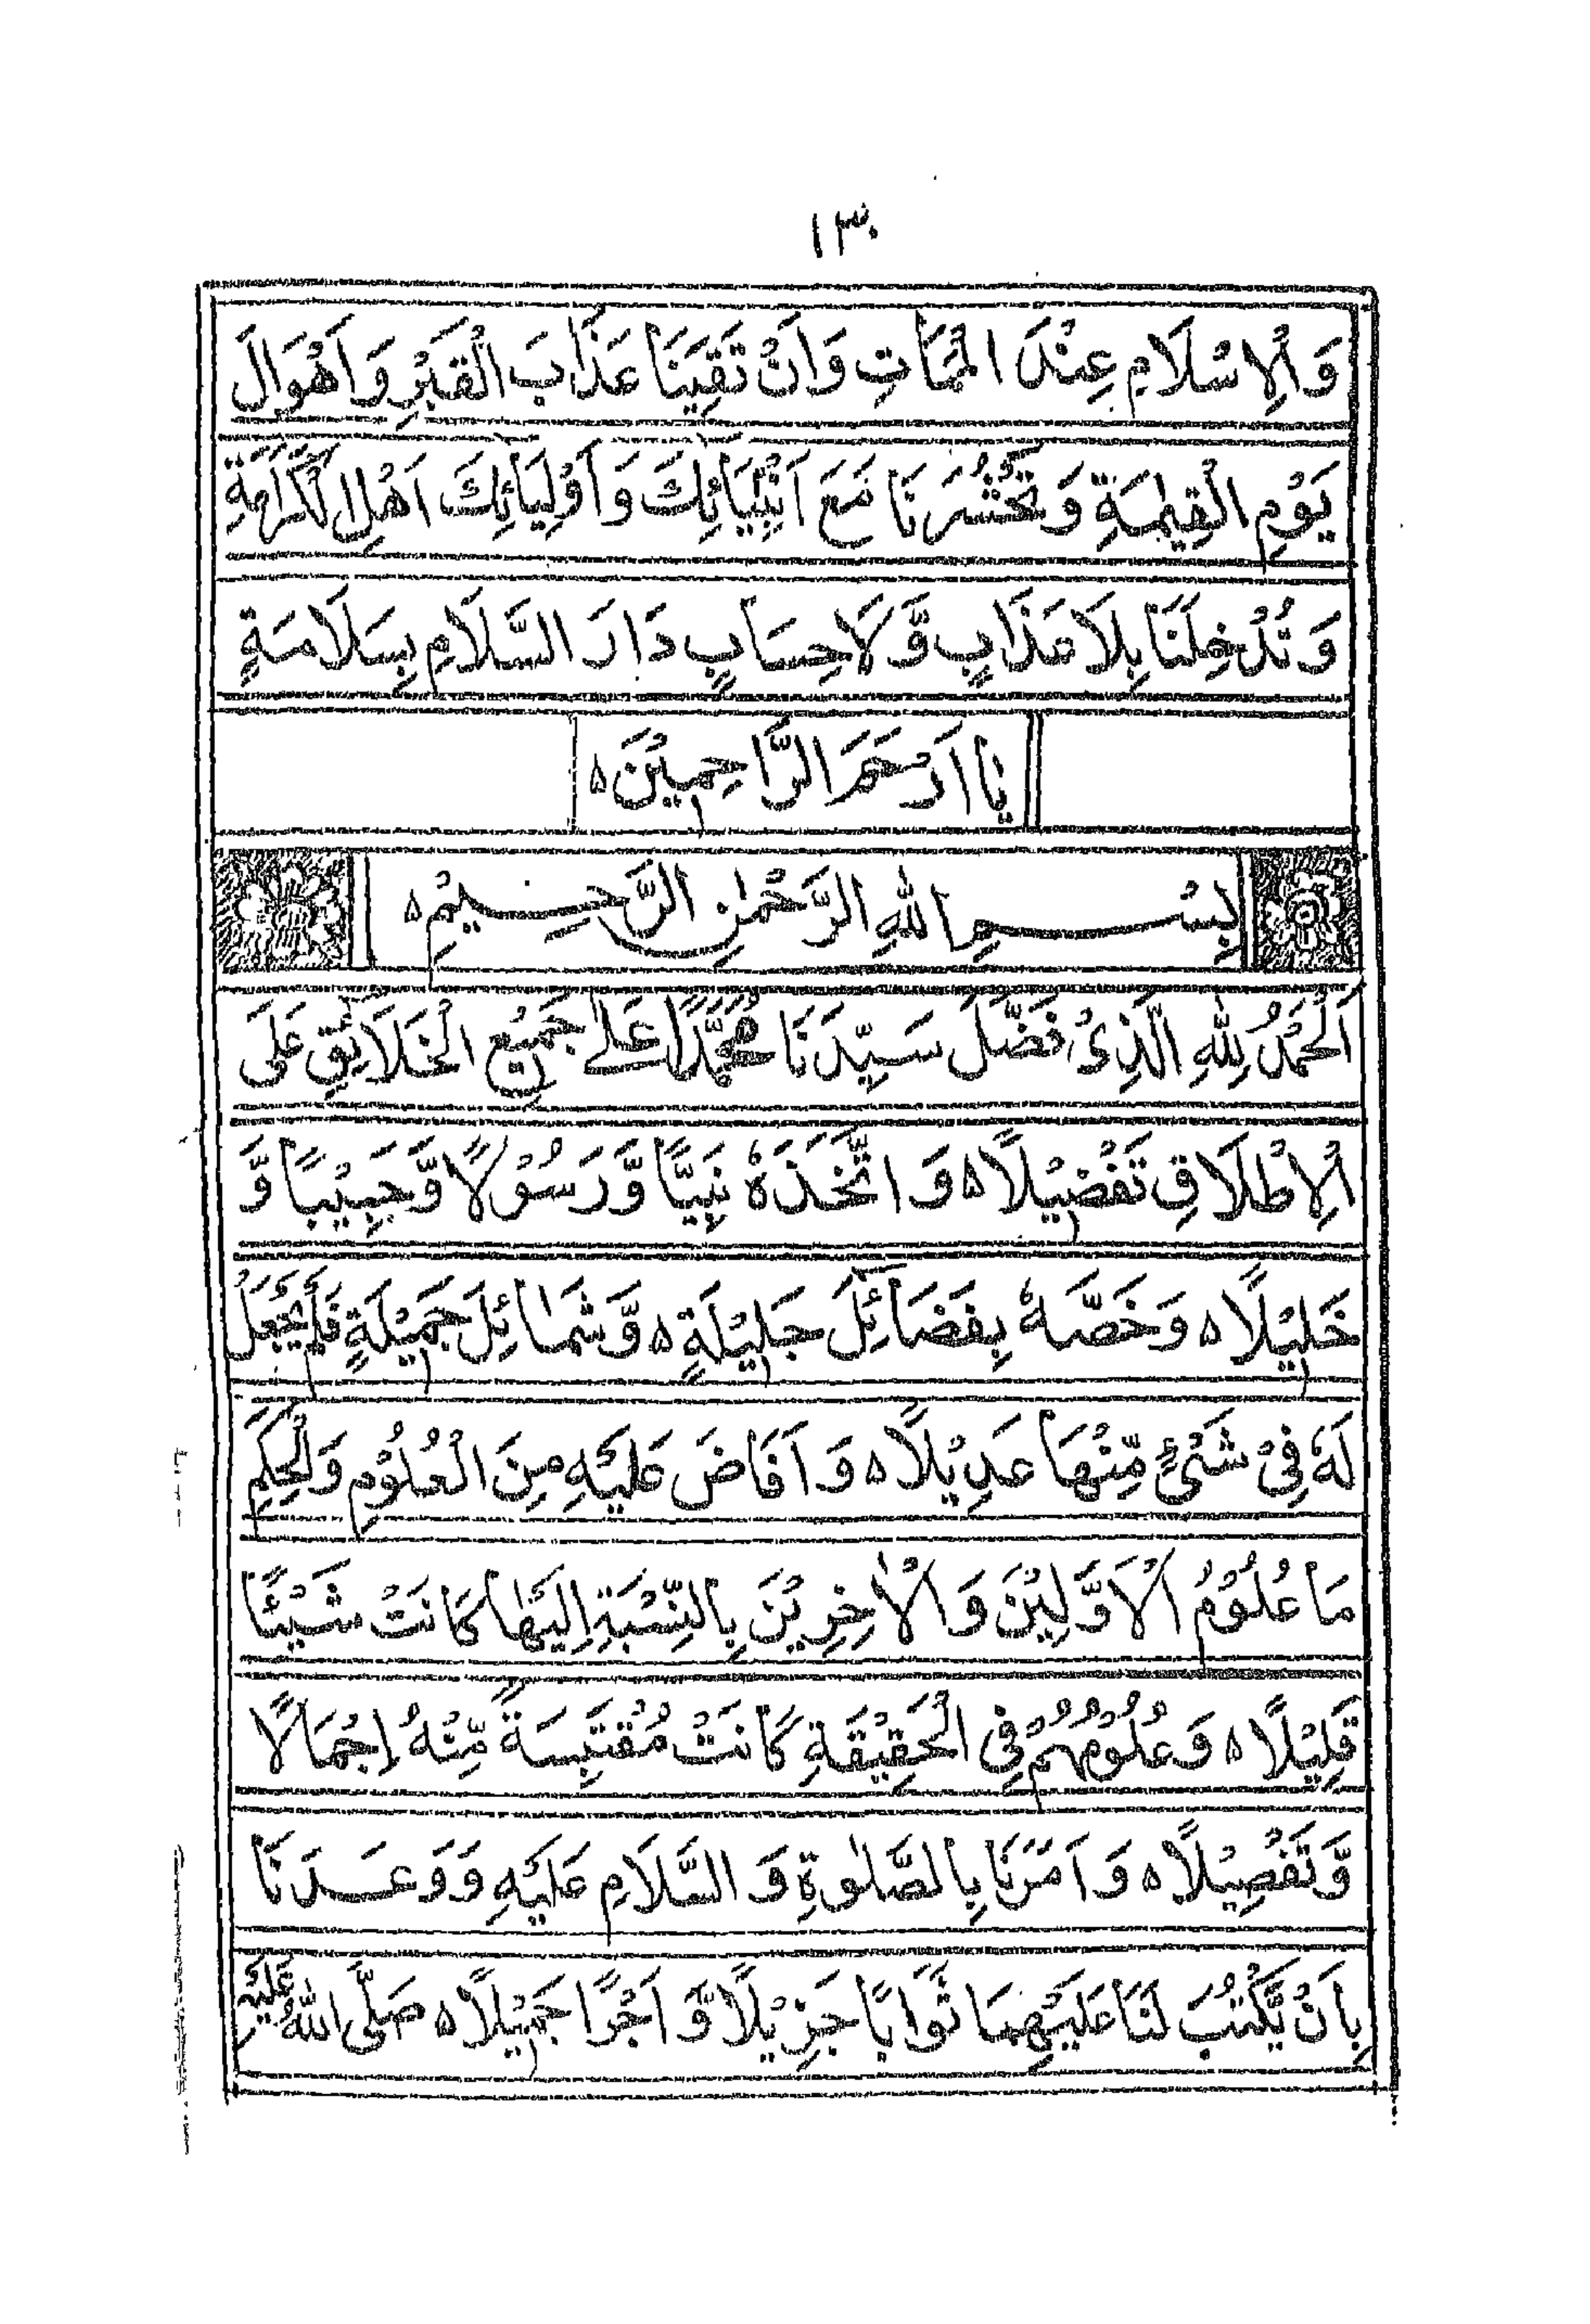 ١٣٠
وَالْاِسْلَامِ عِنْدَ الْمَمَاتِ وَاَنْ تَقِيَنَا عَذَابَ الْقَبْرِ وَاَهْوَالَ
يَوْمِ الْقِيٰمَةِ وَتَحْشُرَنَا مَعَ اَنْبِيَائِكَ وَاَوْلِيَائِكَ اَهْلِ الْكَرَامَةِ
وَتُدْخِلَنَا بِلَا عَذَابٍ وَّلَا حِسَابٍ دَارَ السَّلَامِ بِسَلَامَةٍ
يَا اَرْحَمَ الرَّاحِمِيْنَ ه
بِسْمِ اللهِ الرَّحْمٰنِ الرَّحِيْمِ ه
اَلْحَمْدُ لِلّٰهِ الَّذِيْ فَضَّلَ سَيِّدَنَا مُحَمَّدًا عَلٰى جَمِيْعِ الْخَلَايِقِ عَلَى
الْاِطْلَاقِ تَفْضِيْلًا ه وَاتَّخَذَهٗ نَبِيًّا وَّرَسُوْلًا وَّحَبِيْبًا وَّ
خَلِيْلًا ه وَخَصَّهٗ بِفَضَائِلَ جَلِيْلَةٍ ه وَّشَمَائِلَ جَمِيْلَةٍ فَلَمْ يَجْعَلْ
لَهٗ فِيْ شَيْءٍ مِّنْهَا عَدِيْلًا ه وَاَفَاضَ عَلَيْهِ مِنَ الْعُلُوْمِ وَالْحِكَمِ
مَا عُلُوْمُ الْاَوَّلِيْنَ وَالْاٰخِرِيْنَ بِالنِّسْبَةِ اِلَيْهَا كَانَتْ شَيْئًا
قَلِيْلًا ه وَعُلُوْمُهُمْ فِي الْحَقِيْقَةِ كَانَتْ مُقْتَبِسَةً مِّنْهُ اِجْمَالًا
وَّتَفْصِيْلًا ه وَاَمَرَنَا بِالصَّلٰوةِ وَالسَّلَامِ عَلَيْهِ وَوَعَدَنَا
بِاَنْ يَّكْتُبَ لَنَا عَلَيْهِمَا ثَوَابًا جَزِيْلًا وَّاَجْرًا جَمِيْلًا ه صَلَّى اللهُ عَلَيْهِ